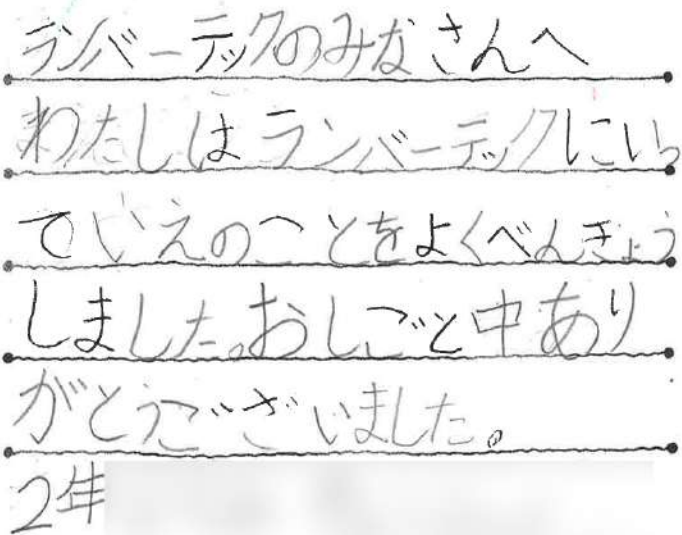 ランバーテックのみなさんへ
わたしはランバーテックにいっ
ていえのことをよくべんきょう
しました。おしごと中あり
がとうございました。
2年